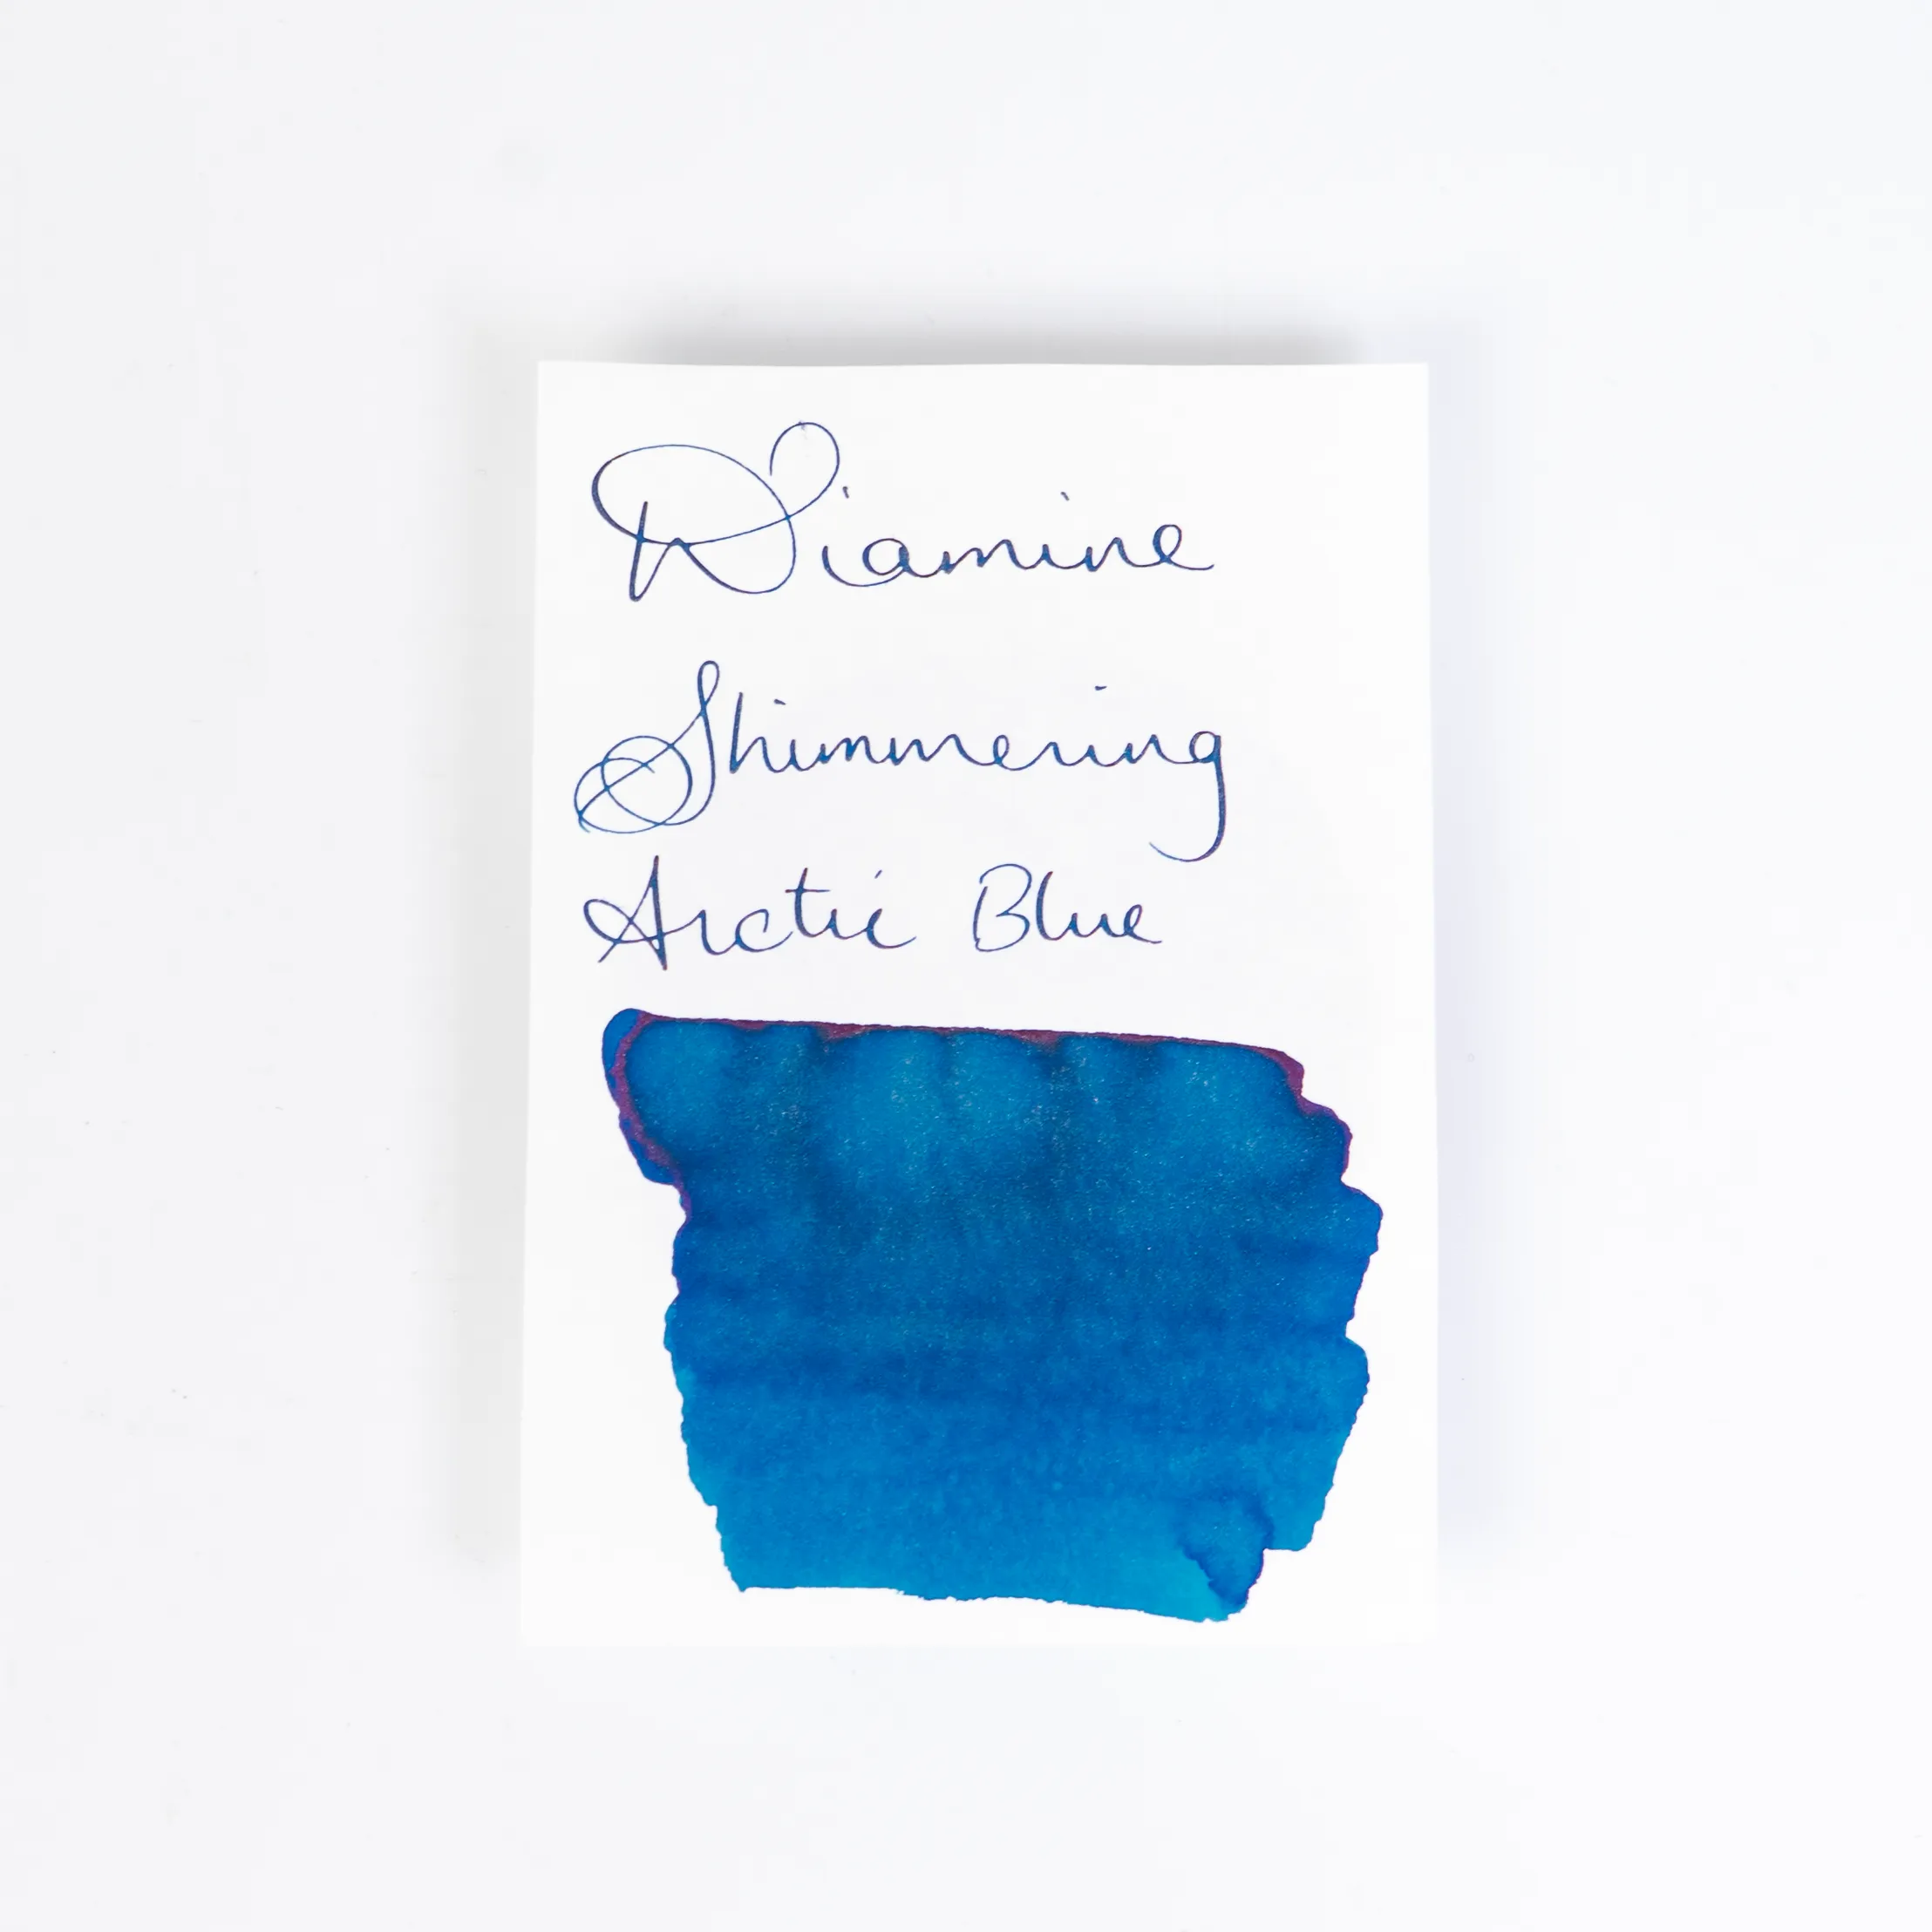 Diamine
Shimmering
Arctic Blue